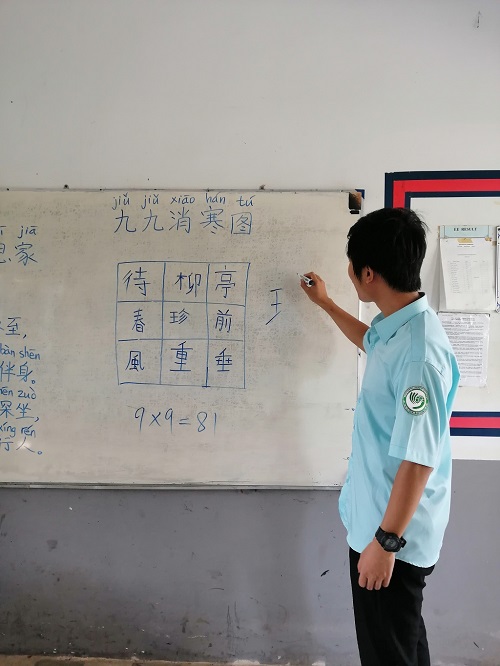 jiǔ jiǔ xiāo hán tú
九九消寒图
待 柳 亭
春 珍 前
風 重 垂
9×9=81
jiā
家
至,
bàn shēn
伴身。
zuò
深坐,
xíng rén
行人。
RESULT